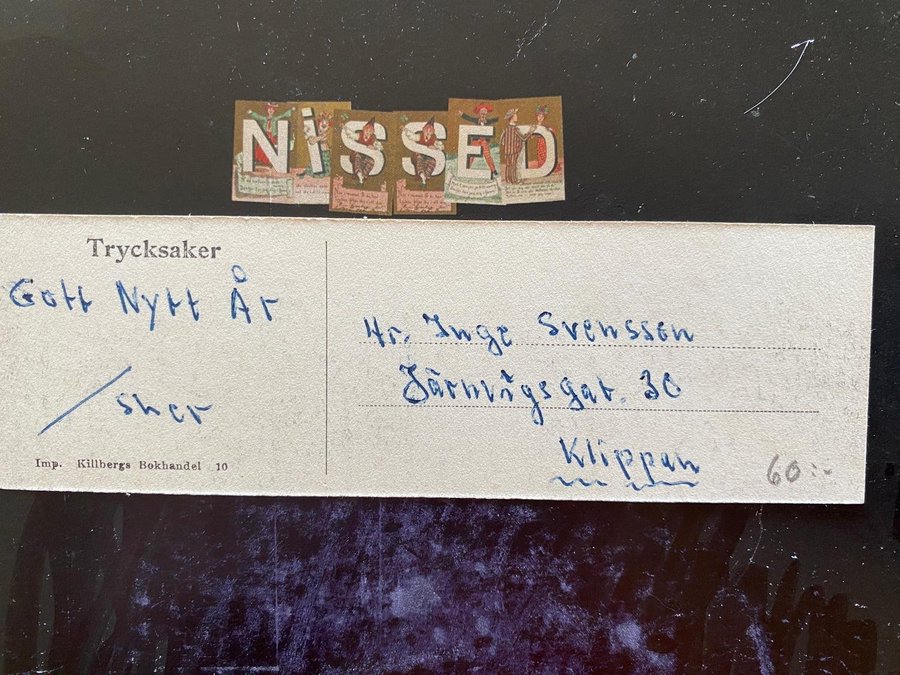 NiSSED
Trycksaker
Gott Nytt År
Hr. Inge Svensson
Järnvägsgat. 30
Klippan
60:-
Imp. Killbergs Bokhandel 10